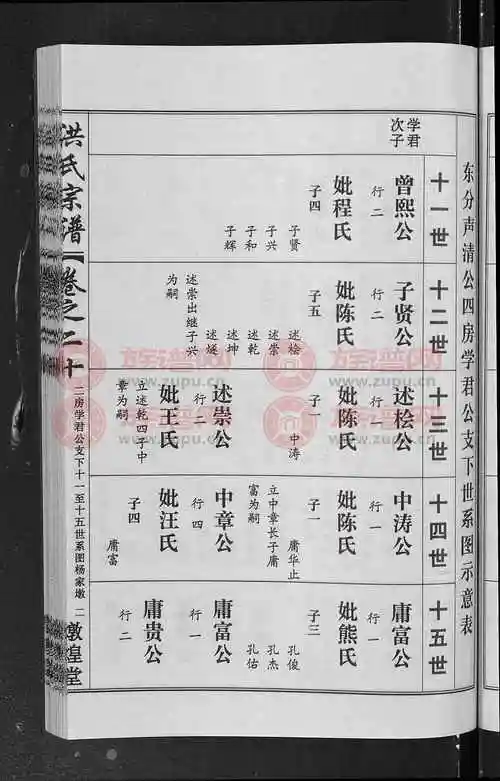 东分声清公四房学君公支下世系图示意表
十一世
学君
次子
曾熙公
行二
妣程氏
子四
子贤
子兴
子和
子辉
十二世
子贤公
行二
妣陈氏
子五
述桧
述崇
述乾
述坤
述燧
述崇出继子兴
为嗣
十三世
述桧公
行一
妣陈氏
子一
中涛
述崇公
行二
妣王氏
立述乾四子中
章为嗣
十四世
中涛公
行一
妣陈氏
子一
庸华止
立中章长子庸
富为嗣
中章公
行四
妣汪氏
子四
庸富
十五世
庸富公
行一
妣熊氏
子三
孔俊
孔杰
孔佑
庸富公
行一
庸贵公
行二
洪氏宗谱
卷之二十
二房学君公支下十一至十五世系图杨家墩
二
敦煌堂
族谱网
www.zupu.cn
族谱网
www.zupu.cn
族谱网
www.zupu.cn
族谱网
www.zupu.cn